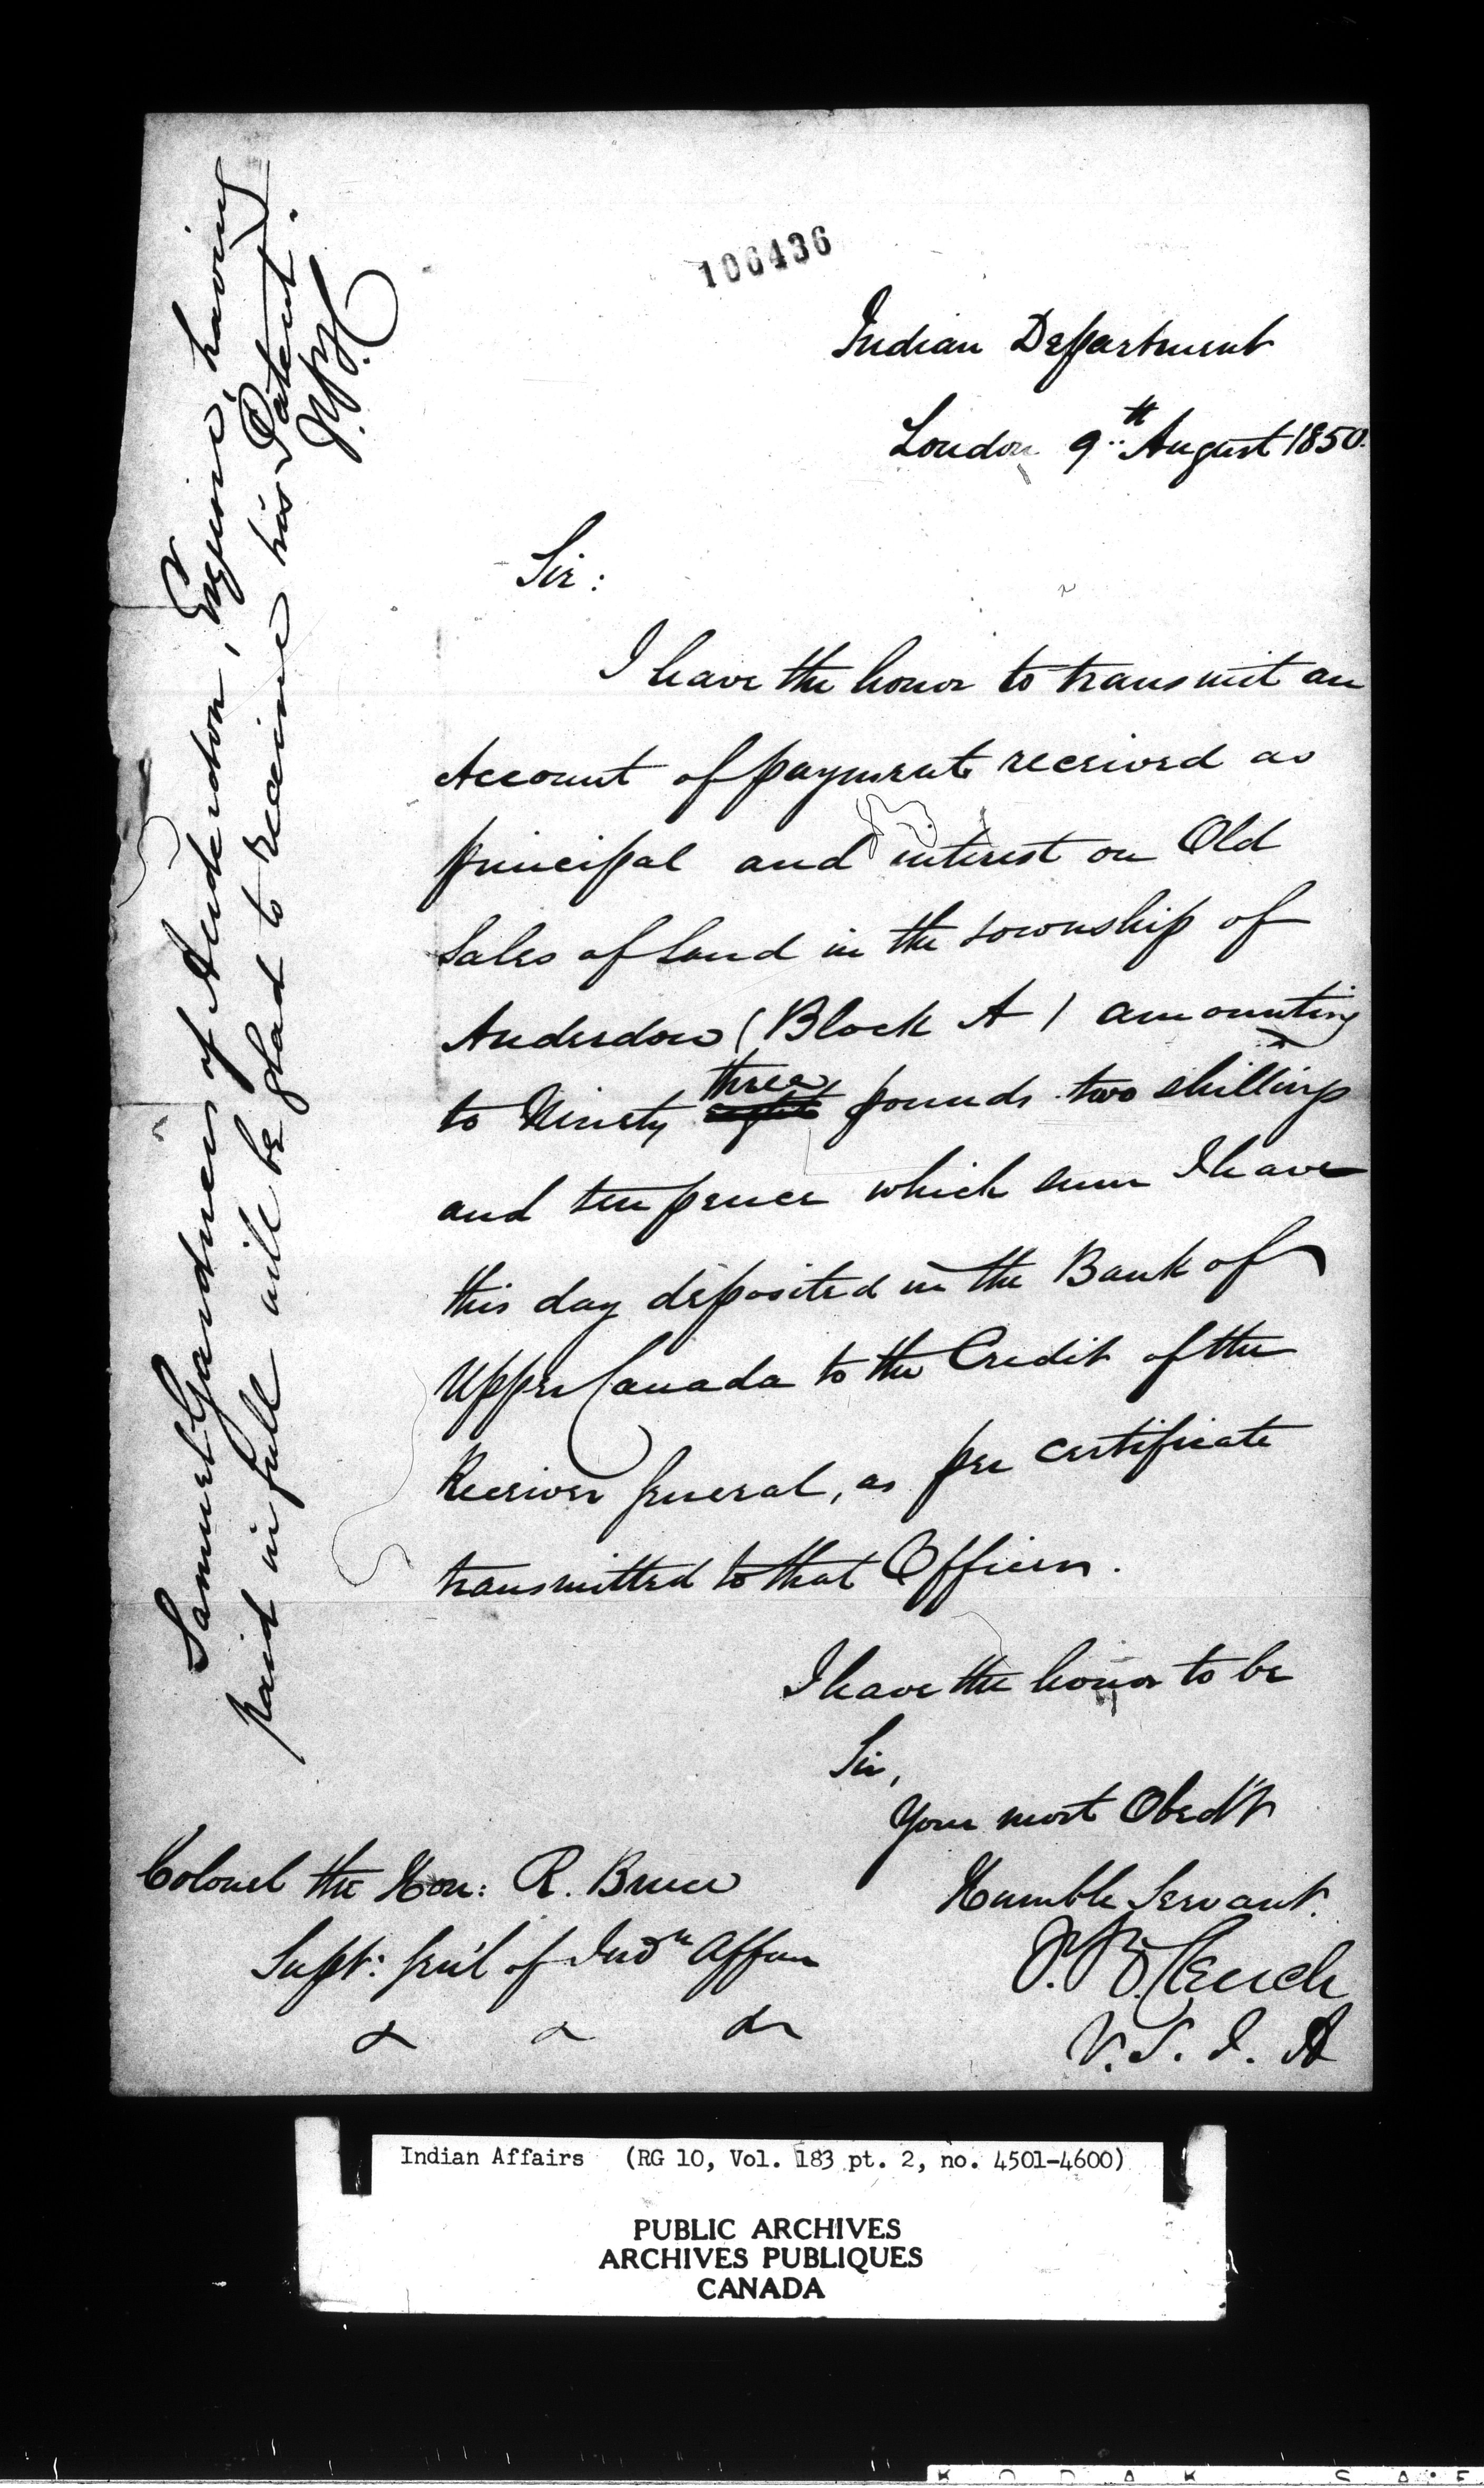 106436
Indian Department
London 9th August 1850.
Sir:
I have the honor to transmit an
Account of payments received as
principal and interest on Old
Sales of Land in the township of
Anderdon (Block A) amounting
three
to Ninety eight pounds two shillings
and ten pence which sum I have
this day deposited in the Bank of
Upper Canada to the Credit of the
Receiver General, as per certificate
transmitted to that Officer.
I have the honor to be
Sir,
Your most Obed't
Humble Servant.
J.B. Clench
V. S. I. A
Colonel the Hon: R. Bruce
Supt: Gen'l of Indn Affairs
& & &c
Samuel Gardner of Anderdon, Esquire, having
paid in full will be glad to receive his Patent.
J.B.C
Indian Affairs (RG 10, Vol. 183 pt. 2, no. 4501-4600)
PUBLIC ARCHIVES
ARCHIVES PUBLIQUES
CANADA